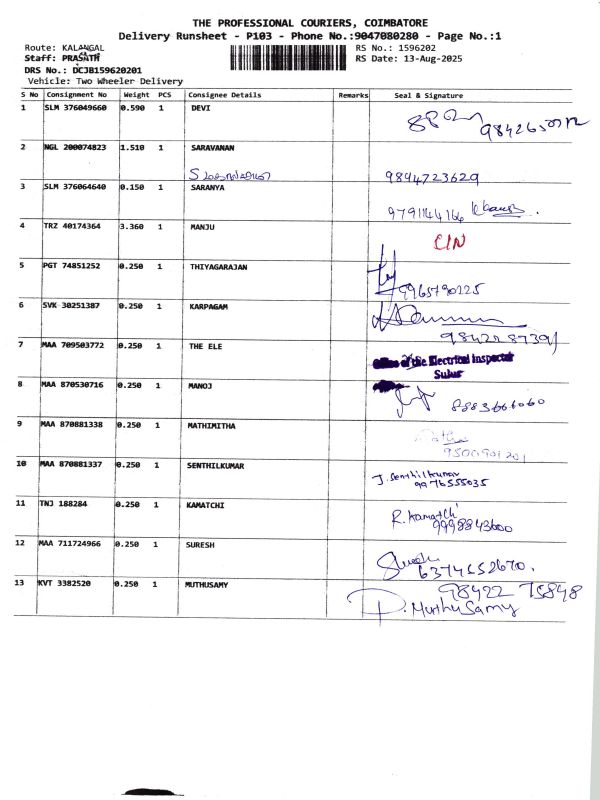 THE PROFESSIONAL COURIERS, COIMBATORE
Delivery Runsheet - P103 - Phone No.:9047080280 - Page No.:1
Route: KALANGAL RS No.: 1596202
Staff: PRASATH RS Date: 13-Aug-2025
DRS No.: DCJB159620201
Vehicle: Two Wheeler Delivery
S No Consignment No Weight PCS Consignee Details Remarks Seal & Signature
1 SLM 376049660 0.590 1 DEVI
2 NGL 200074823 1.510 1 SARAVANAN
9894723629
3 SLM 376064640 0.150 1 SARANYA
9791144164
4 TRZ 40174364 3.360 1 MANJU
5 PGT 74851252 0.250 1 THIYAGARAJAN
9965790225
6 SVK 30251387 0.250 1 KARPAGAM
7 MAA 709503772 0.250 1 THE ELE
Office of the Electrical Inspector
Sulur
8 MAA 870530716 0.250 1 MANOJ
8883666060
9 MAA 870881338 0.250 1 MATHIMITHA
9500901201
10 MAA 870881337 0.250 1 SENTHILKUMAR
J. Senthilkumar
9976555035
11 TNJ 188284 0.250 1 KAMATCHI
R. Kamatchi
9998843600
12 MAA 711724966 0.250 1 SURESH
6374652670.
13 KVT 3382520 0.250 1 MUTHUSAMY
98422 75848
P. MuthuSamy